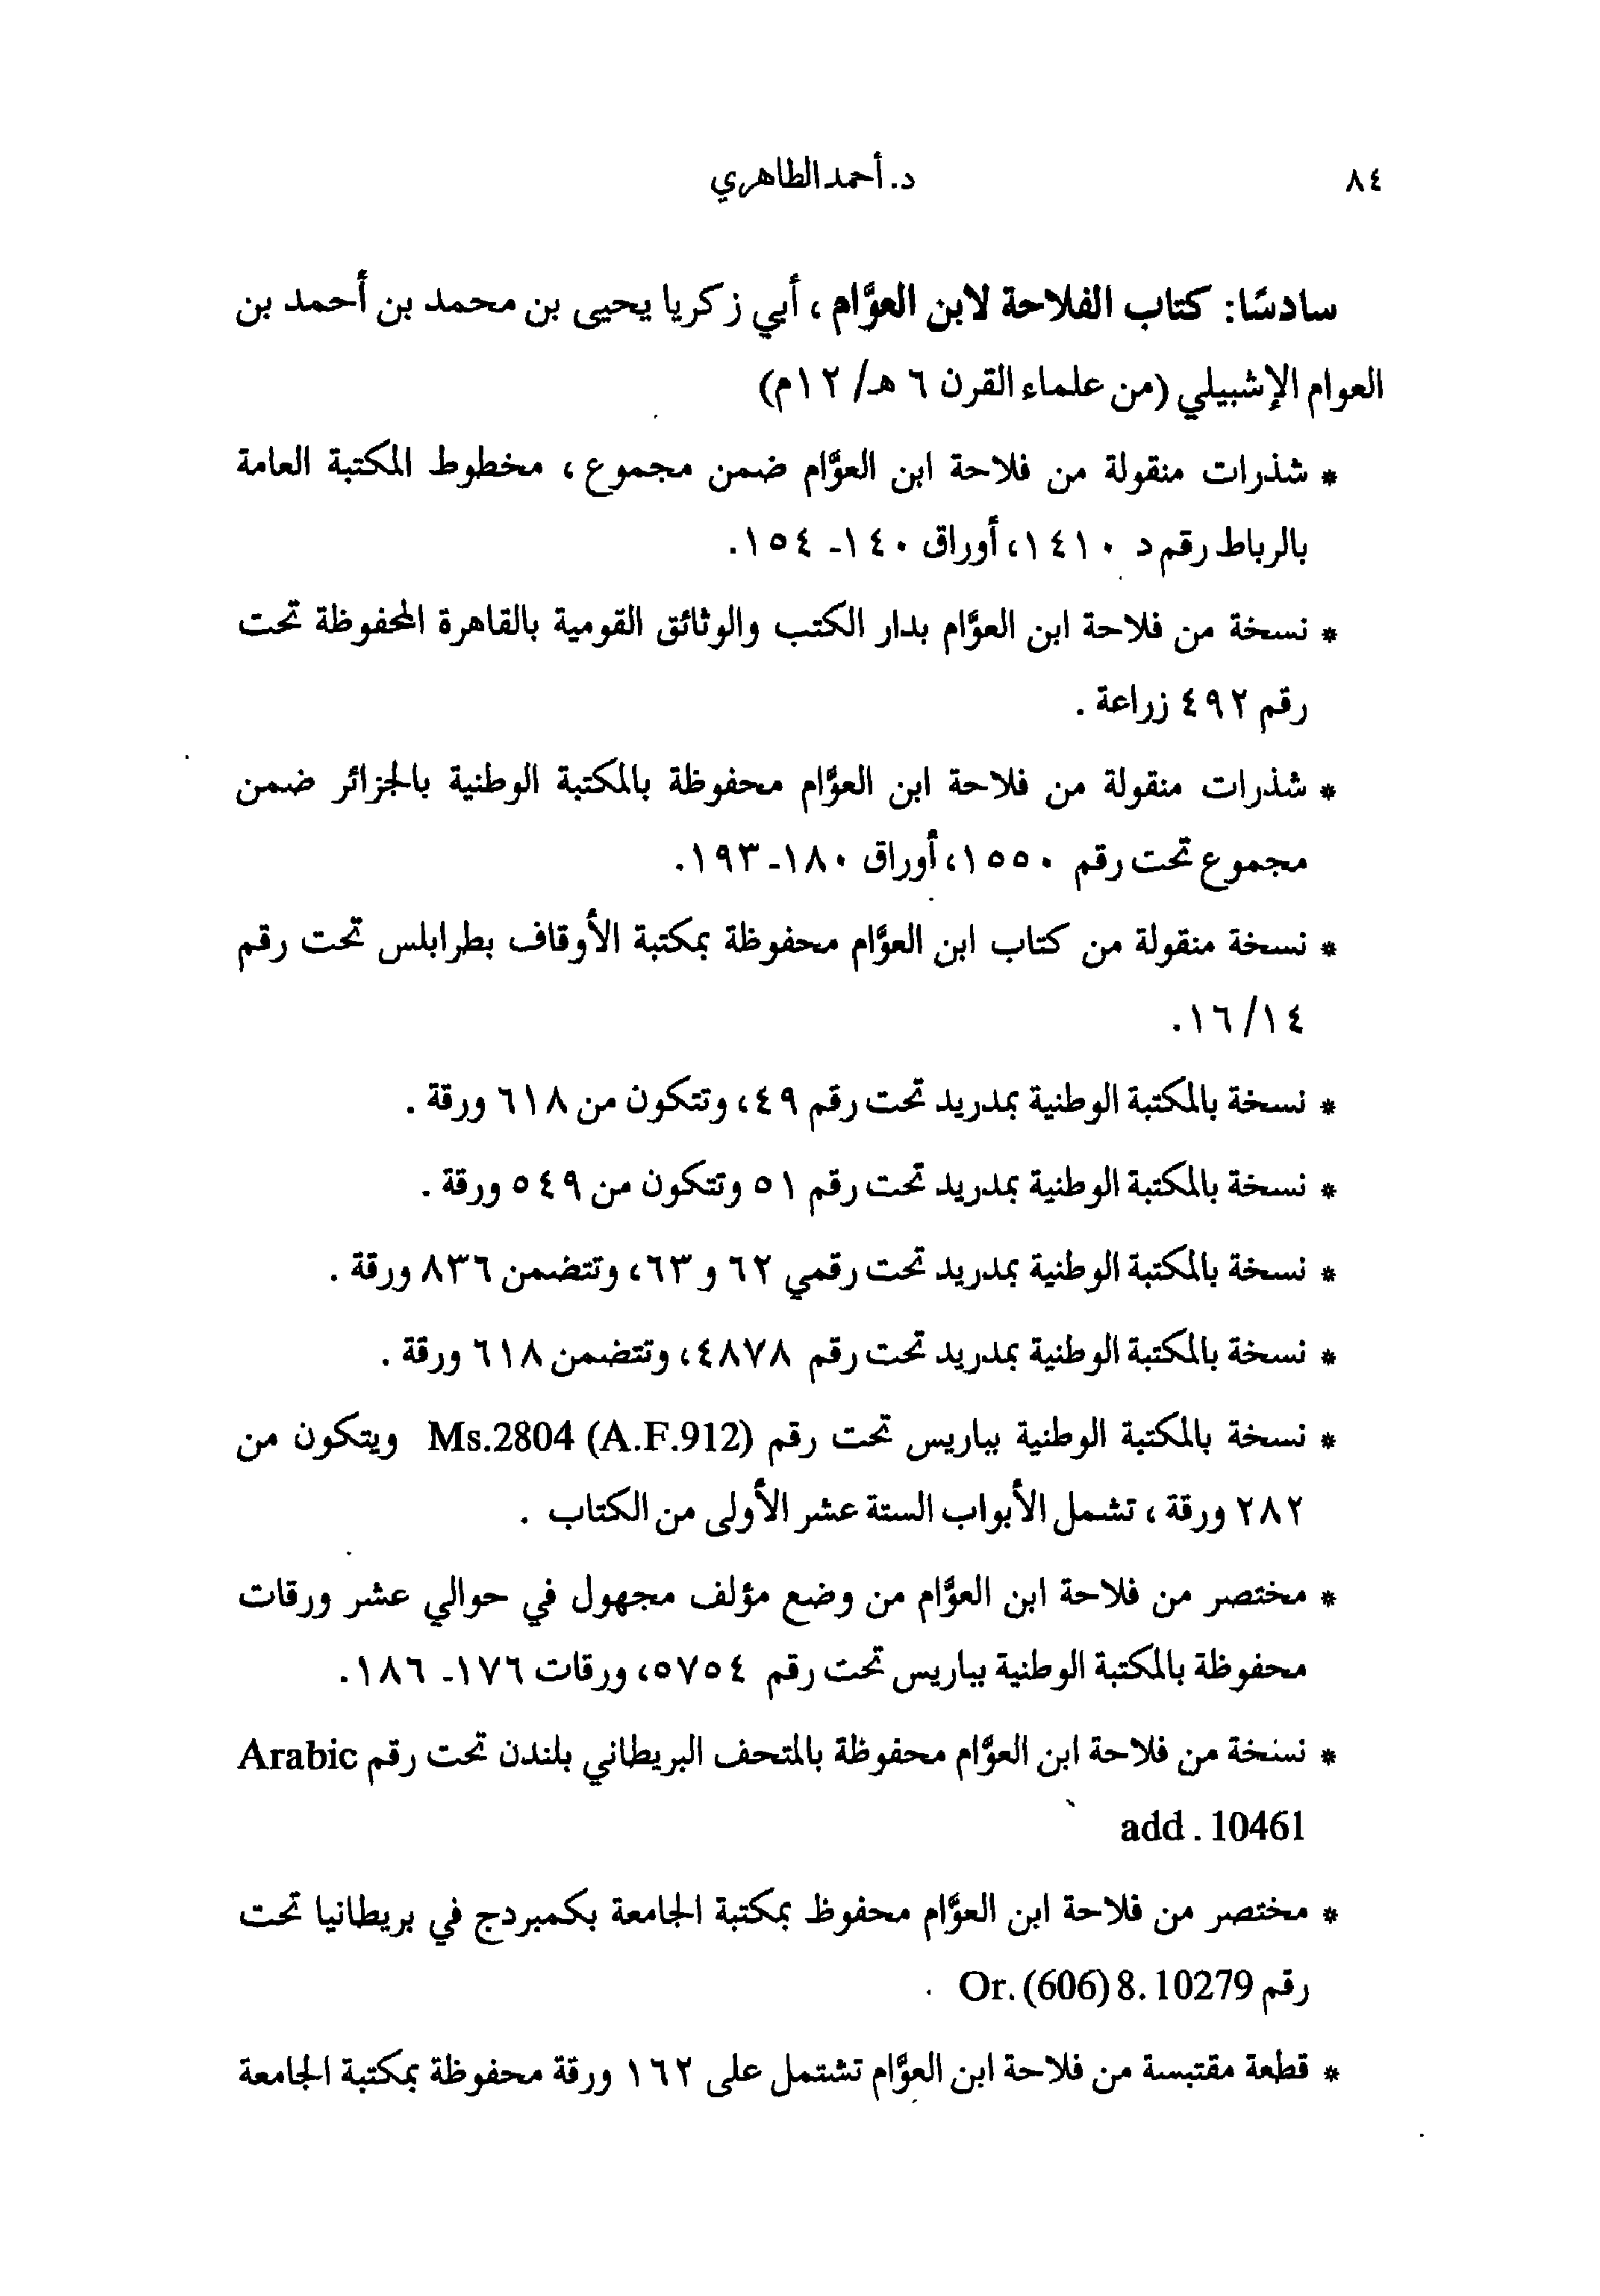 ٨٤
د. أحمد الطاهري
سادسًا: كتاب الفلاحة لابن العوَّام، أبي زكريا يحيى بن محمد بن أحمد بن
العوام الإشبيلي (من علماء القرن ٦ هـ/ ١٢م)
* شذرات منقولة من فلاحة ابن العوَّام ضمن مجموع، مخطوط المكتبة العامة
بالرباط رقم د ١٤١٠، أوراق ١٤٠- ١٥٤.
* نسخة من فلاحة ابن العوَّام بدار الكتب والوثائق القومية بالقاهرة المحفوظة تحت
رقم ٤٩٢ زراعة.
* شذرات منقولة من فلاحة ابن العوَّام محفوظة بالمكتبة الوطنية بالجزائر ضمن
مجموع تحت رقم ١٥٥٠، أوراق ١٨٠-١٩٣.
* نسخة منقولة من كتاب ابن العوَّام محفوظة بمكتبة الأوقاف بطرابلس تحت رقم
١٦/١٤.
* نسخة بالمكتبة الوطنية بمدريد تحت رقم ٤٩، وتتكون من ٦١٨ ورقة.
* نسخة بالمكتبة الوطنية بمدريد تحت رقم ٥١ وتتكون من ٥٤٩ ورقة.
* نسخة بالمكتبة الوطنية بمدريد تحت رقمي ٦٢ و٦٣، وتتضمن ٨٣٦ ورقة.
* نسخة بالمكتبة الوطنية بمدريد تحت رقم ٤٨٧٨، وتتضمن ٦١٨ ورقة.
* نسخة بالمكتبة الوطنية بباريس تحت رقم Ms.2804 (A.F.912) ويتكون من
٢٨٢ ورقة، تشمل الأبواب الستة عشر الأولى من الكتاب.
* مختصر من فلاحة ابن العوَّام من وضع مؤلف مجهول في حوالي عشر ورقات
محفوظة بالمكتبة الوطنية بباريس تحت رقم ٥٧٥٤، ورقات ١٧٦- ١٨٦.
* نسخة من فلاحة ابن العوَّام محفوظة بالمتحف البريطاني بلندن تحت رقم Arabic
add. 10461
* مختصر من فلاحة ابن العوَّام محفوظ بمكتبة الجامعة بكمبردج في بريطانيا تحت
رقم Or. (606) 8. 10279 .
* قطعة مقتبسة من فلاحة ابن العوَّام تشتمل على ١٦٢ ورقة محفوظة بمكتبة الجامعة